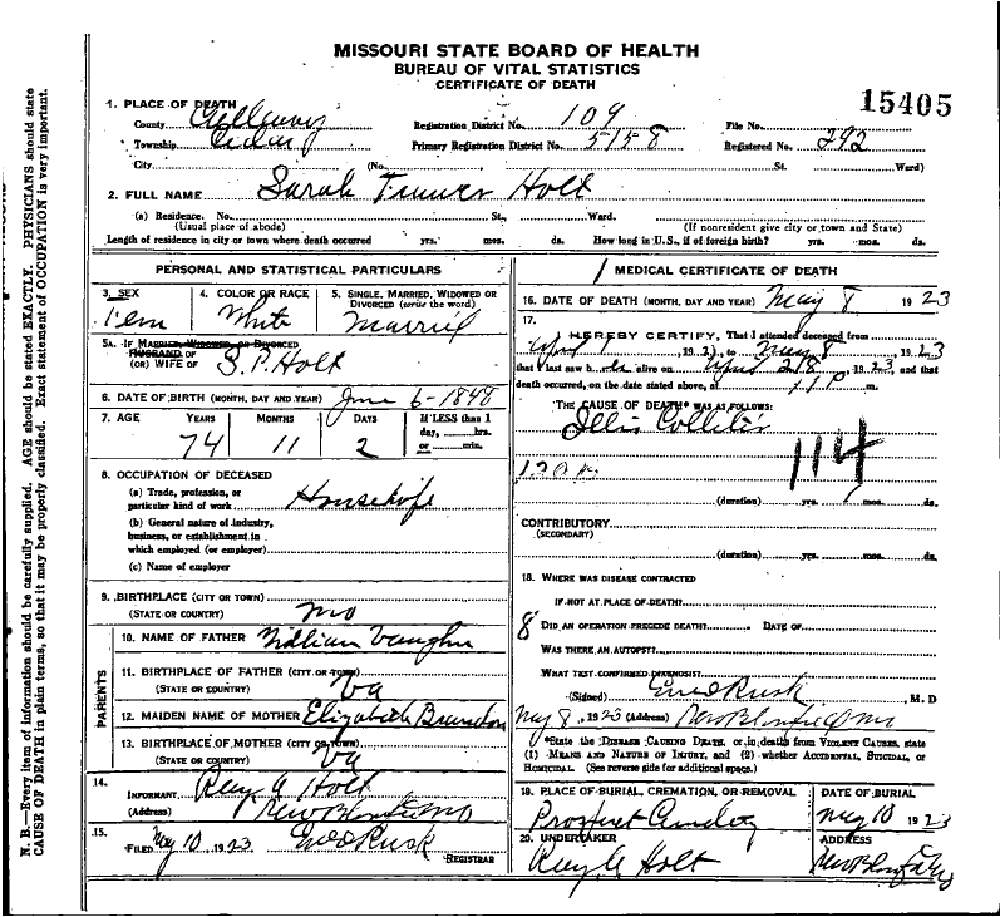 MISSOURI STATE BOARD OF HEALTH
BUREAU OF VITAL STATISTICS
CERTIFICATE OF DEATH
15405
1. PLACE OF DEATH
County Callaway Registration District No. 109 File No.
Township Cedar Primary Registration District No. 5158 Registered No. 292
City (No. St. Ward)
2. FULL NAME Sarah Holt
(a) Residence. No. St., Ward.
(Usual place of abode) (If nonresident give city or town and State)
Length of residence in city or town where death occurred yrs. mos. ds. How long in U.S., if of foreign birth? yrs. mos. ds.
PERSONAL AND STATISTICAL PARTICULARS
3. SEX 4. COLOR OR RACE 5. SINGLE, MARRIED, WIDOWED OR
DIVORCED (write the word)
Fem White Married
5A. IF MARRIED, WIDOWED, OR DIVORCED
HUSBAND OF
(OR) WIFE OF S.P. Holt
6. DATE OF BIRTH (MONTH, DAY AND YEAR) June 6-1848
7. AGE YEARS MONTHS DAYS If LESS than 1
day, hrs.
or min.
74 11 2
8. OCCUPATION OF DECEASED
(a) Trade, profession, or
particular kind of work Housewife
(b) General nature of industry,
business, or establishment in
which employed (or employer)
(c) Name of employer
9. BIRTHPLACE (CITY OR TOWN)
(STATE OR COUNTRY) Mo
PARENTS
10. NAME OF FATHER William Vaughn
11. BIRTHPLACE OF FATHER (CITY OR TOWN)
(STATE OR COUNTRY) Va
12. MAIDEN NAME OF MOTHER Elizabeth
13. BIRTHPLACE OF MOTHER (CITY OR TOWN)
(STATE OR COUNTRY) Va
14.
INFORMANT Holt
(Address) New Bloomfield Mo
15.
FILED May 10 1923 Rusk
REGISTRAR
MEDICAL CERTIFICATE OF DEATH
16. DATE OF DEATH (MONTH, DAY AND YEAR) May 8 1923
17.
I HEREBY CERTIFY, That I attended deceased from
April 1, 1923, to May 8 1923
that I last saw h er alive on April 28, 1923, and that
death occurred, on the date stated above, at 11 P m.
THE CAUSE OF DEATH* WAS AS FOLLOWS:
Colitis
114
(duration) yrs. mos. ds.
CONTRIBUTORY
(SECONDARY)
(duration) yrs. mos. ds.
18. WHERE WAS DISEASE CONTRACTED
IF NOT AT PLACE OF DEATH?
8 DID AN OPERATION PRECEDE DEATH? DATE OF
WAS THERE AN AUTOPSY?
WHAT TEST CONFIRMED DIAGNOSIS?
(Signed) Rusk, M. D
May 8, 1923 (Address) New Bloomfield Mo
*State the DISEASE CAUSING DEATH, or in death from VIOLENT CAUSES, state
(1) MEANS AND NATURE OF INJURY, and (2) whether ACCIDENTAL, SUICIDAL, or
HOMICIDAL. (See reverse side for additional space.)
19. PLACE OF BURIAL, CREMATION, OR REMOVAL DATE OF BURIAL
Prospect May 10 1923
20. UNDERTAKER ADDRESS
Holt New Bloomfield
N. B.—Every item of information should be carefully supplied. AGE should be stated EXACTLY. PHYSICIANS should state
CAUSE OF DEATH in plain terms, so that it may be properly classified. Exact statement of OCCUPATION is very important.